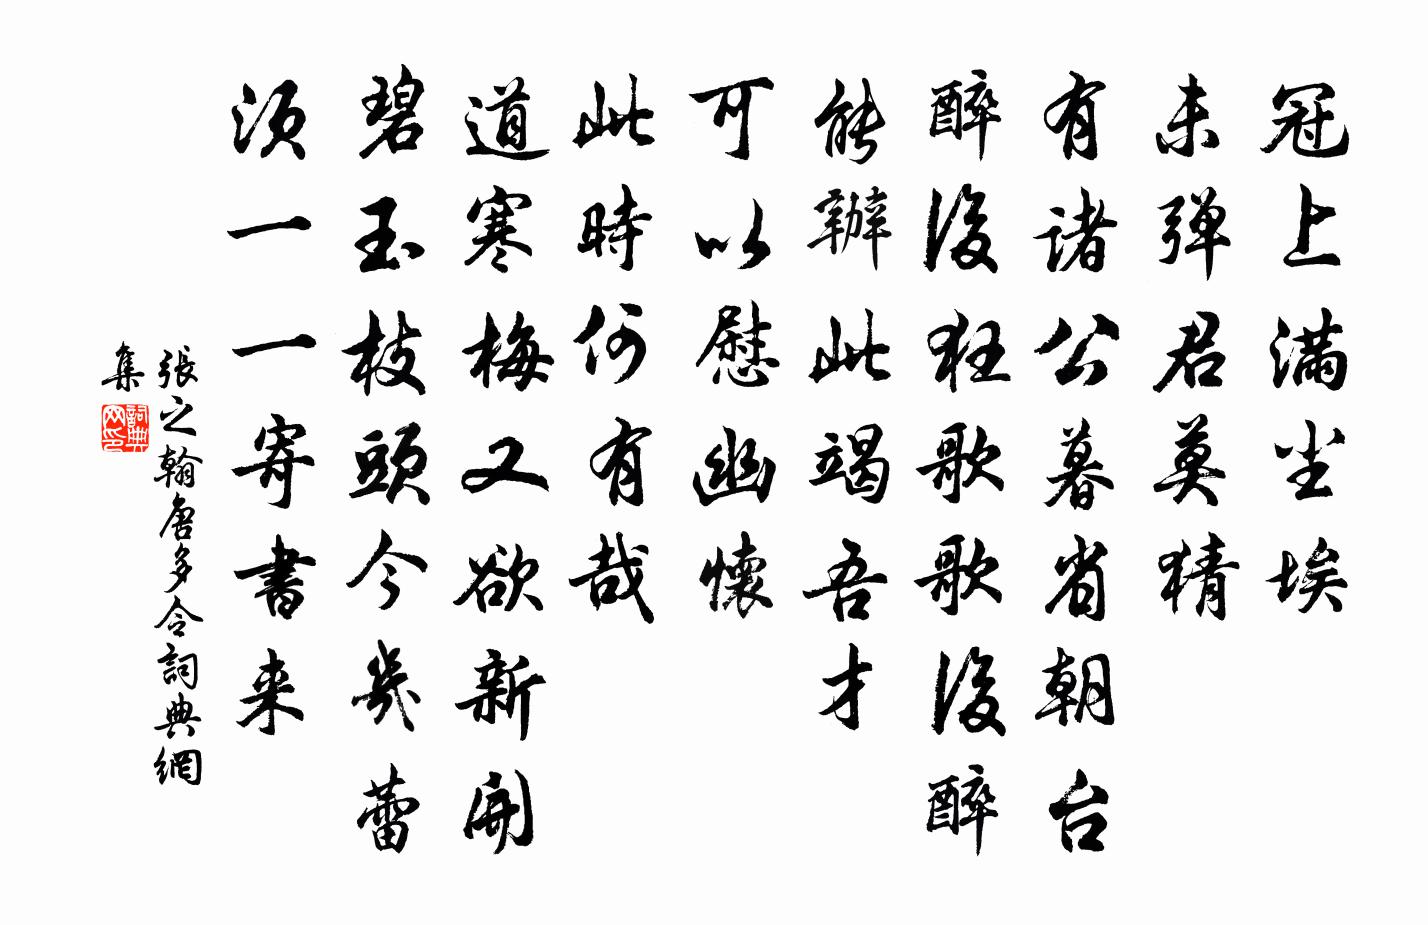 冠上满尘埃
未弹君莫猜
有诸公暮省朝台
醉後狂歌歌後醉
能辦此竭吾才
可以慰幽懷
此時何有哉
道寒梅又欲新開
碧玉枝頭今幾蕾
须一一寄書来
張之翰唐多令詞典網
集
詞典网印